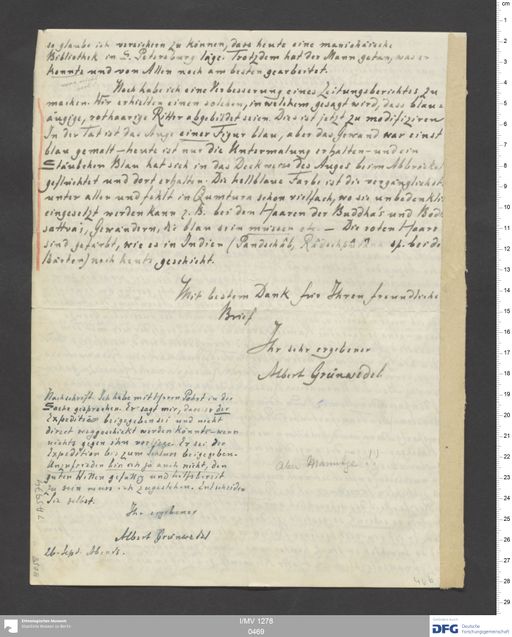 so glaube ich versichern zu können, dass heute eine manichäische
Bibliothek in S. Petersburg läge. Trotzdem hat der Mann getan, was er
konnte und von Allen noch am besten gearbeitet.
Noch habe ich eine Verbesserung eines Zeitungsberichtes zu
machen. Wir erhielten einen solchen, in welchem gesagt wird, dass blau
äugige, rothaarige Ritter abgebildet seien. Dies ist jetzt zu modifiziren
In der Tat ist das Auge einer Figur blau, aber das Gewand war einst
blau gemalt – heute ist nur die Untermalung erhalten – und ein
Stäubchen Blau hat sich in das des Auges beim Abbröckel
geflüchtet und dort erhalten. Die hellblaue Farbe ist die vergänglichste
unter allen und fehlt in Qumtura schon vielfach, wo sie unbedenklich
eingesetzt werden kann z. B. bei den Haaren der Buddha's und Bodhi
sattvas, Gewändern, die blau sein müssen etc – Die roten Haare
sind gefärbt, wie es in Indien (Pandschâb, sp. bei de
Bärten) noch heute geschieht.
Mit bestem Dank für Ihren freundliche
Brief
Ihr sehr ergebener
Albert Grünwedel
Nachschrift. Ich habe mit Herrn Pohrt in der
Sache gesprochen. Er sagt mir, dass er der
Expedition beigegeben sei und nicht
direct weggeschickt werden könnte – wenn
nichts gegen ihn vorläge. Er sei der
Expedition bis zum Schluss beigegeben.
Unzufrieden bin ich ja auch nicht, den
guten Willen gefällig und hilfsbereit
zu sein muss ich zugestehen. Entscheiden
Sie selbst.
Ihr ergebener
Albert Grünwedel
26. Sept. Abends.
aber !!)
I/MV 1278
0469
Ethnologisches Museum
Staatliche Museen zu Berlin
DFG
Deutsche
Forschungsgemeinschaft
cm
1
2
3
4
5
6
7
8
9
10
11
12
13
14
15
16
17
18
19
20
21
22
23
24
25
26
27
28
29